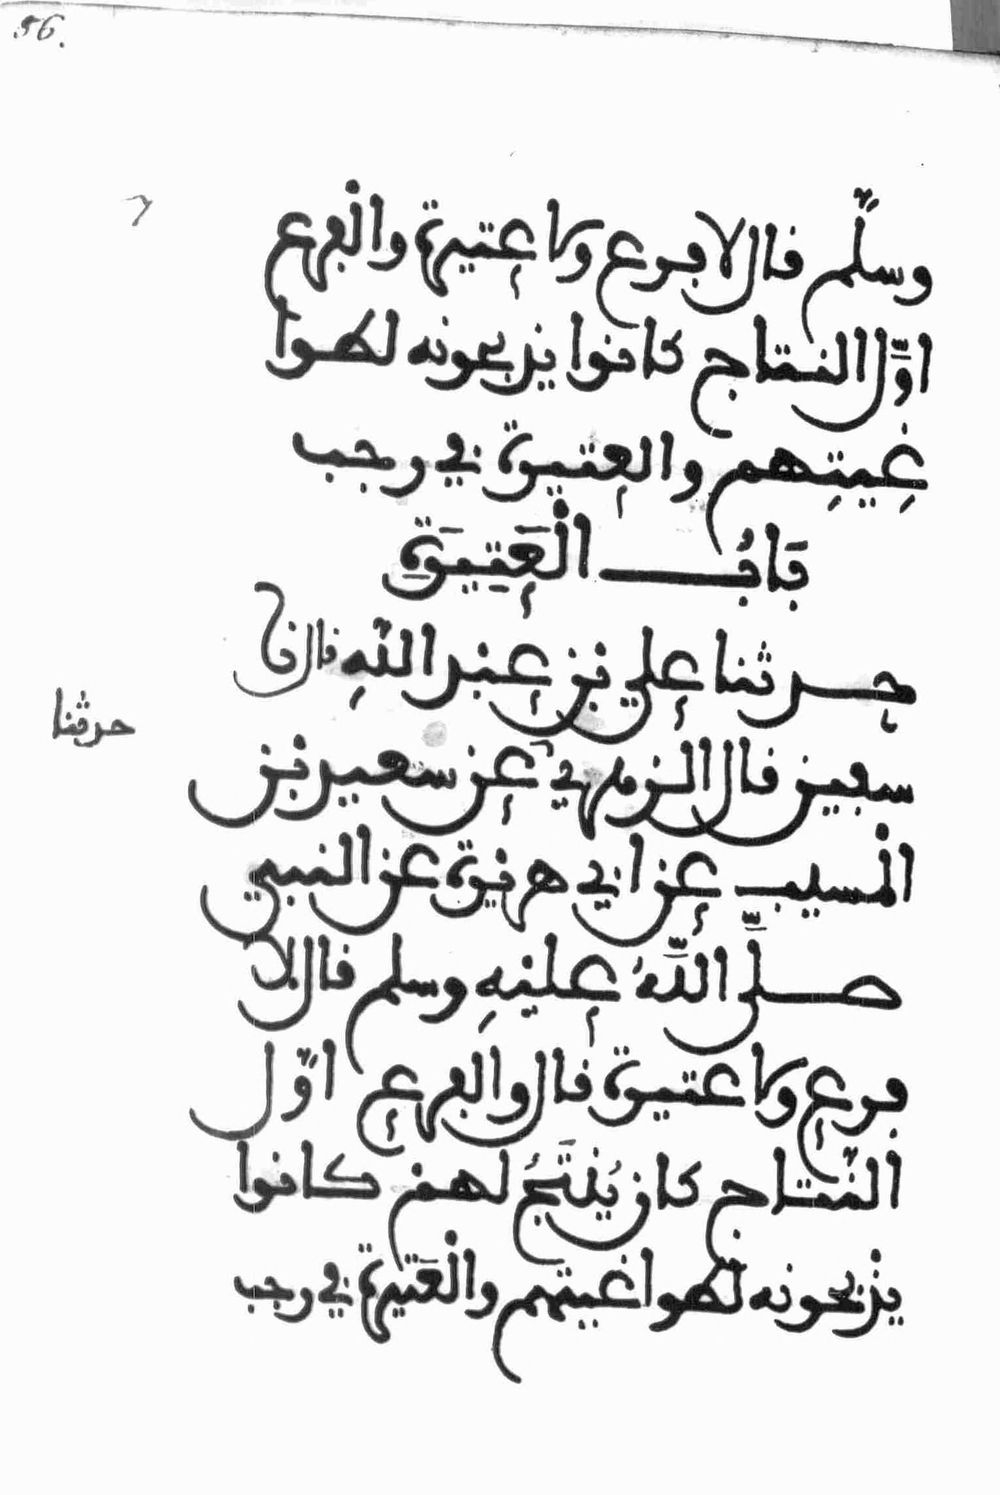 56.
وسلّم قال لا فرع ولا عتيرة والْفرع
اوّل النتاج كانوا يذبحونه لطوا
غِيتِهم والعتيرة في رجب
بَابُ الْعَتِيرَة
حدثنا علي بن عبد اللّهِ قال نا
حدثنا
سفين قال الزهري عن سعيد بن
الْمسيب عن ابي هريرة عن النبي
صلَّى اللَّهُ عليْهِ وسلم قال لا
فرع ولا عتيرة قال والفرع اوّل
النّتاج كان يُنْتَجُ لهم كانوا
يذْبحونه لطواغيتهم والْعَتيرة في رجب